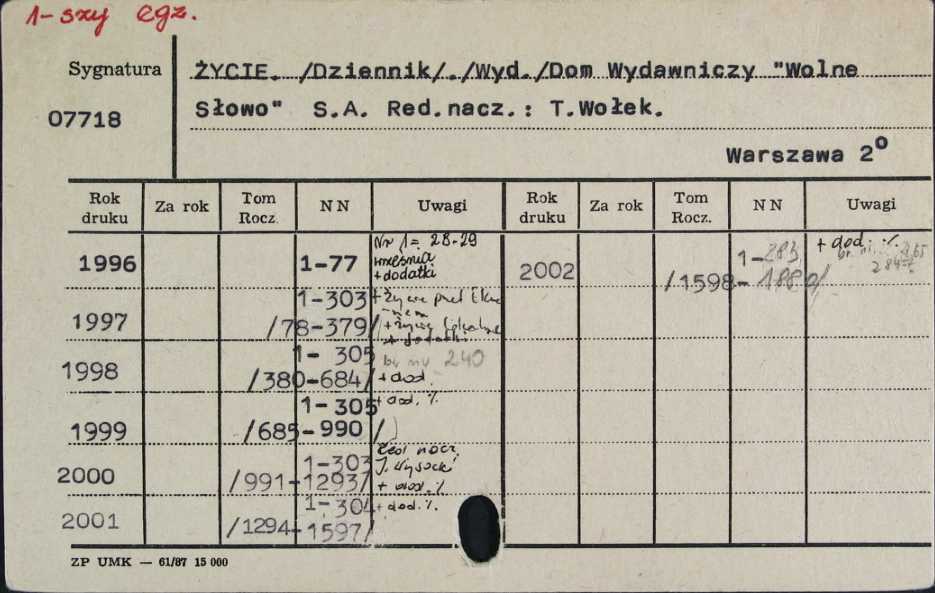 1-szy egz.
Sygnatura
07718
ŻYCIE. /Dziennik/./Wyd./Dom Wydawniczy "Wolne
Słowo" S.A. Red.nacz.: T.Wołek.
Warszawa 2º
Rok druku Za rok Tom Rocz. NN Uwagi Rok druku Za rok Tom Rocz. NN Uwagi
1996 1-77 Nr 1= 28-29
września
+dodatki
2002 1-283 + dod. %.
/1598-1880/ 284
1997 1-303 + Życie
/78-379/ + Życie
+ dodatki
1998 1- 305 br nr 240
/380-684/ + dod.
1999 1-305 + dod. %
/685-990 /
2000 1-303 Red. nacz.
J. Wysocki
/991-1293/ + dod. %
2001 1-304 + dod. %.
/1294-1597/
ZP UMK — 61/87 15 000